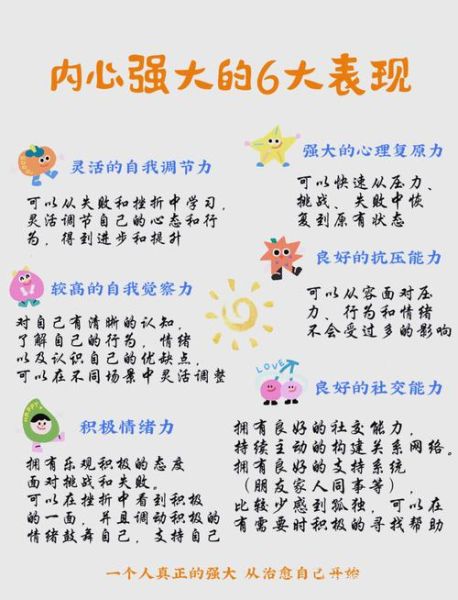 内心强大的6大表现
灵活的自我调节力
可以从失败和挫折中学习，
灵活调节自己的心态和行
为，得到进步和提升
强大的心理复原力
可以快速从压力、
挑战、失败中恢
复到原有状态
较高的自我觉察力
对自己有清晰的认知，
了解自己的行为，情绪
以及认识自己的优缺点，
可以在不同场景中灵活调整
良好的抗压能力
可以从容面对压
力、行为和情绪
不会受过多的影响
积极情绪力
拥有乐观积极的态度
面对挑战和失败。
可以在挫折中看到积极
的一面，并且调动积极的
情绪鼓舞自己，支持自己
LOVE
良好的社交能力
拥有良好的社交能力，
持续主动的构建关系网络。
拥有良好的支持系统
（朋友家人同事等），
比较少感到孤独，可以在
有需要时积极的寻找帮助
HAPPY
一个人真正的强大 从治愈自己开始